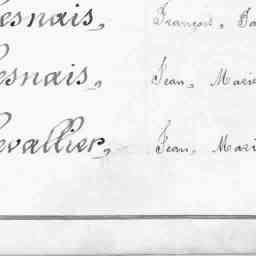 esnais, François, Ba
esnais, Jean, Marie
evallier, Jean, Mari